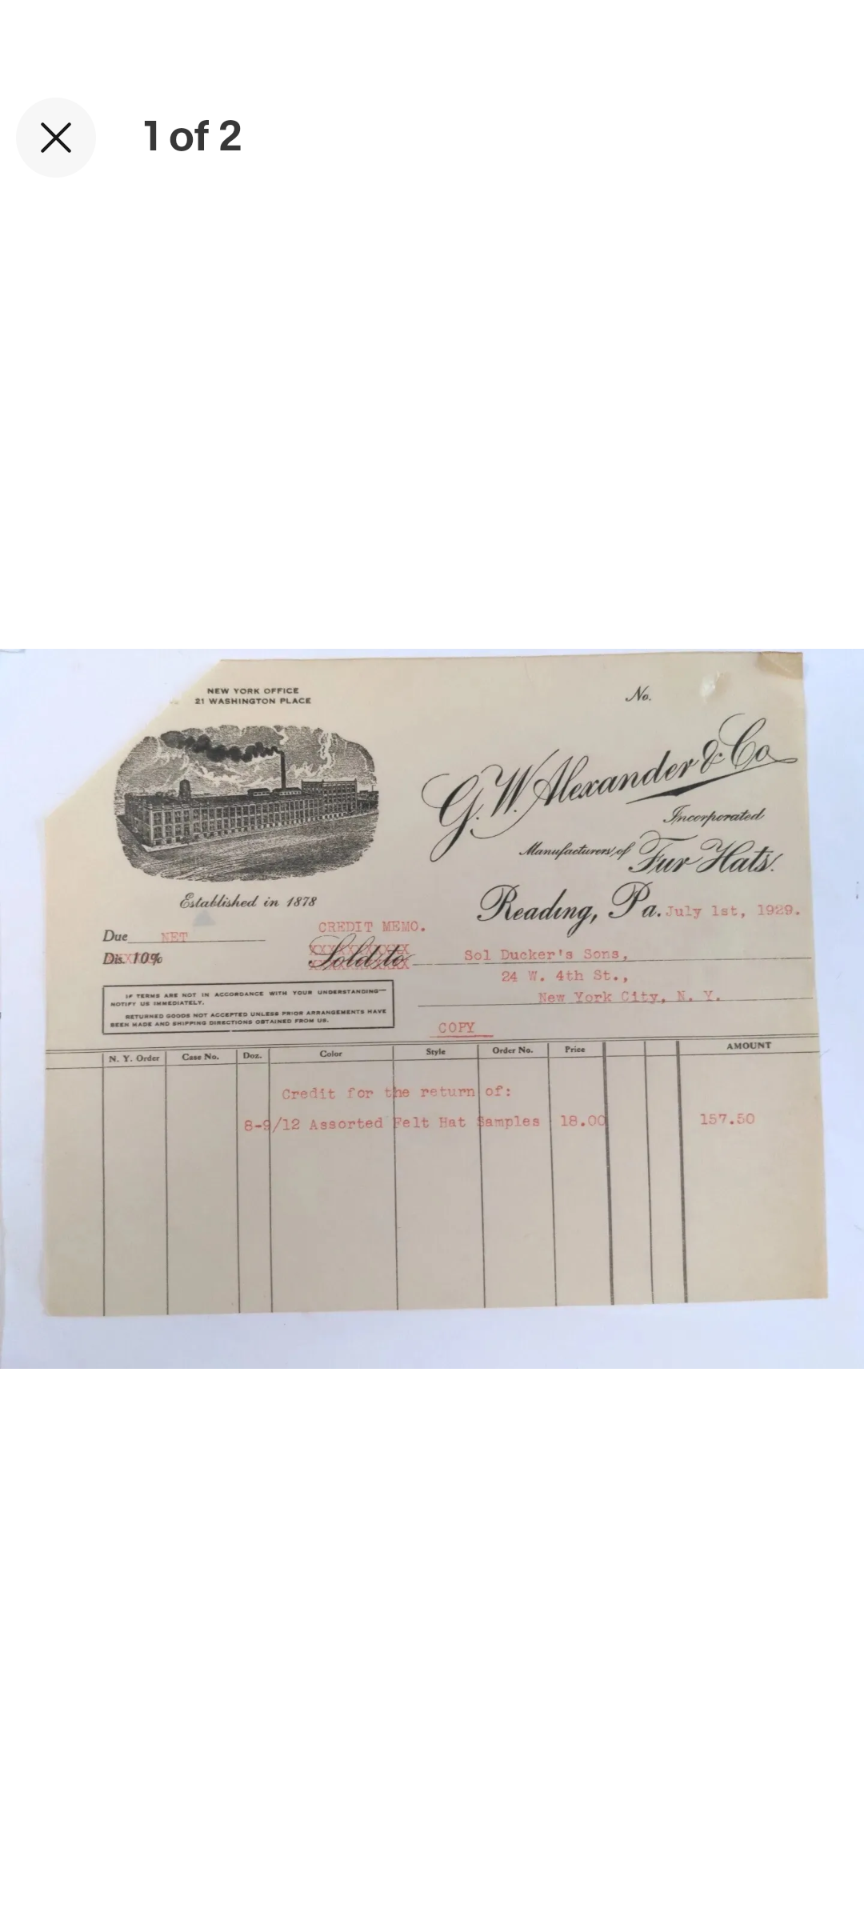 1 of 2
NEW YORK OFFICE
21 WASHINGTON PLACE
No.
G. W. Alexander & Co
Incorporated
Manufacturers of Fur Hats.
Established in 1878
Reading, Pa. July 1st, 1929.
Due NET
CREDIT MEMO.
Dis. 10%
Sold to Sol Ducker's Sons,
24 W. 4th St.,
New York City, N. Y.
IF TERMS ARE NOT IN ACCORDANCE WITH YOUR UNDERSTANDING—
NOTIFY US IMMEDIATELY.
RETURNED GOODS NOT ACCEPTED UNLESS PRIOR ARRANGEMENTS HAVE
BEEN MADE AND SHIPPING DIRECTIONS OBTAINED FROM US.
COPY
N. Y. Order Case No. Doz. Color Style Order No. Price AMOUNT
Credit for the return of:
8-9/12 Assorted Felt Hat Samples 18.00 157.50